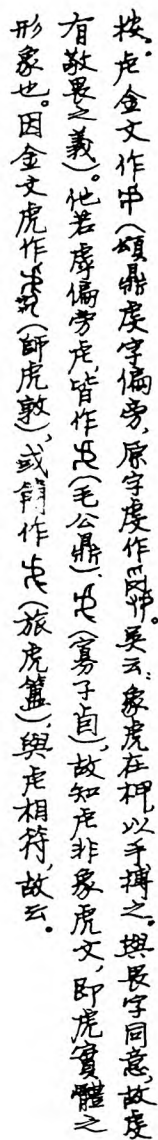 按。虍金文作(頌鼎虔字偏旁,原字虔作。吳云:象虎在柙,以手搏之。與畏字同意,故虔
有敬畏之義)。他若虖偏旁虍,皆作(毛公鼎)、(寡子卣),故知虍非象虎文,即虎實體之
形象也。因金文虎作(師虎敦),或作(旅虎簠),與虍相符,故云。